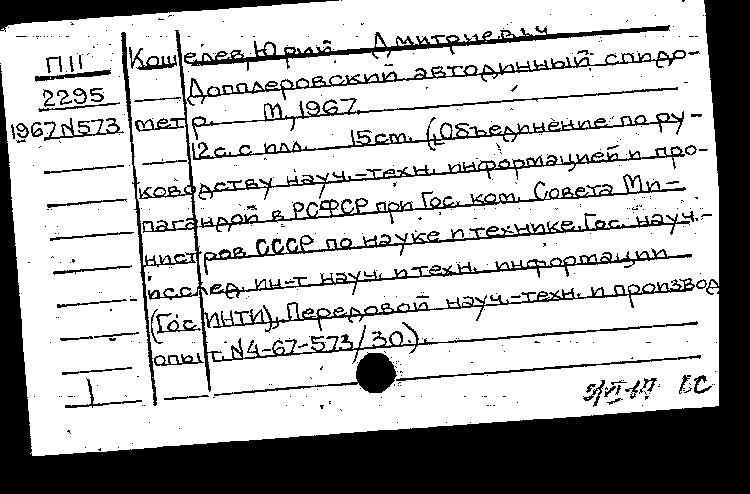 П11 Кошелев, Юрий Дмитриевич
2295 Допплеровский автодинный спидо-
1967 N573 метр. М., 1967.
12 с. с илл. 15 см. (Объединение по ру-
ководству науч.-техн. информацией и про-
пагандой в РСФСР при Гос. ком. Совета Ми-
нистров СССР по науке и технике. Гос. науч.-
исслед. ин-т науч. и техн. информации
(ГосИНТИ), Передовой науч.-техн. и производ
опыт. N4-67-573/30).